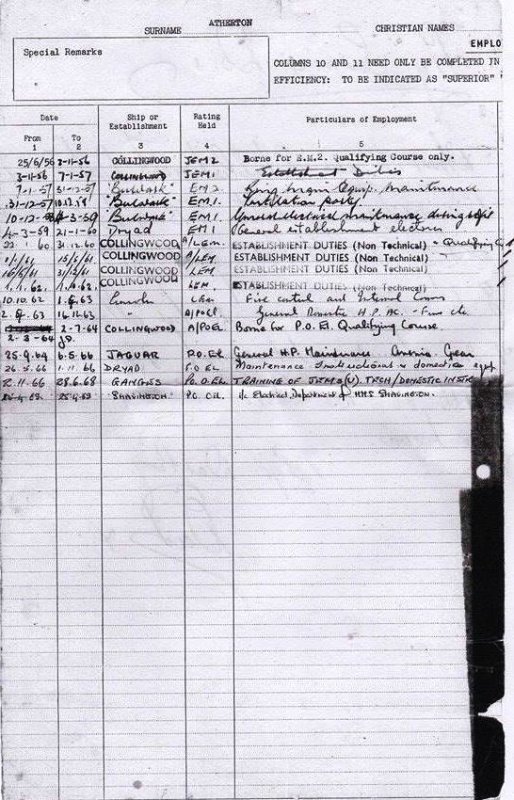 SURNAME ATHERTON CHRISTIAN NAMES
Special Remarks
EMPLO
COLUMNS 10 AND 11 NEED ONLY BE COMPLETED IN
EFFICIENCY: TO BE INDICATED AS "SUPERIOR"
Date Ship or Establishment Rating Held Particulars of Employment
From To
1 2 3 4 5
25/6/56 2-11-56 COLLINGWOOD JEM2 Borne for E.M.2. Qualifying Course only.
3-11-56 7-1-57 COLLINGWOOD JEM1 Establishment Duties
7-1-57 31-12-57 "Bulwark" EM2 Maintenance
31-12-57 "Bulwark" EM1. party
10-12-58 4-3-59 "Bulwark" EM1 General electrical maintenance
4-3-59 21-1-60 Dryad EM1 General establishment
22 1 60 31-12-60 COLLINGWOOD A/LEM. ESTABLISHMENT DUTIES (Non Technical) - Qualifying
15/5/61 COLLINGWOOD A/LEM ESTABLISHMENT DUTIES (Non Technical)
16/5/61 31/12/61 COLLINGWOOD LEM ESTABLISHMENT DUTIES (Non Technical)
COLLINGWOOD LEM. ESTABLISHMENT DUTIES (Non Technical)
10.10.62 LEM Fire control and Internal Comms
16.12.63 " General Domestic H.P. AC.
2-7-64 COLLINGWOOD A/POEL Borne for P.O.El. Qualifying Course
2-3-64
25-9-64 6.5.66 JAGUAR P.O.EL. General H.P. Maintenance Gear
26.5.66 1.11.66 DRYAD P.O EL Maintenance Instructional & domestic
2.11.66 28.6.68 GANGES PO.O.EL. TRAINING OF TECH/DOMESTIC INSTR
25-4-69 SHAVINGTON. P.O. El. i/c Electrical Department of HMS SHAVINGTON.